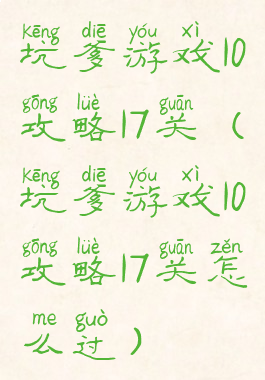 kēng diē yóu xì
坑爹游戏10
gōng lüè guān
攻略17关（
kēng diē yóu xì
坑爹游戏10
gōng lüè guān zěn
攻略17关怎
me guò
么过）